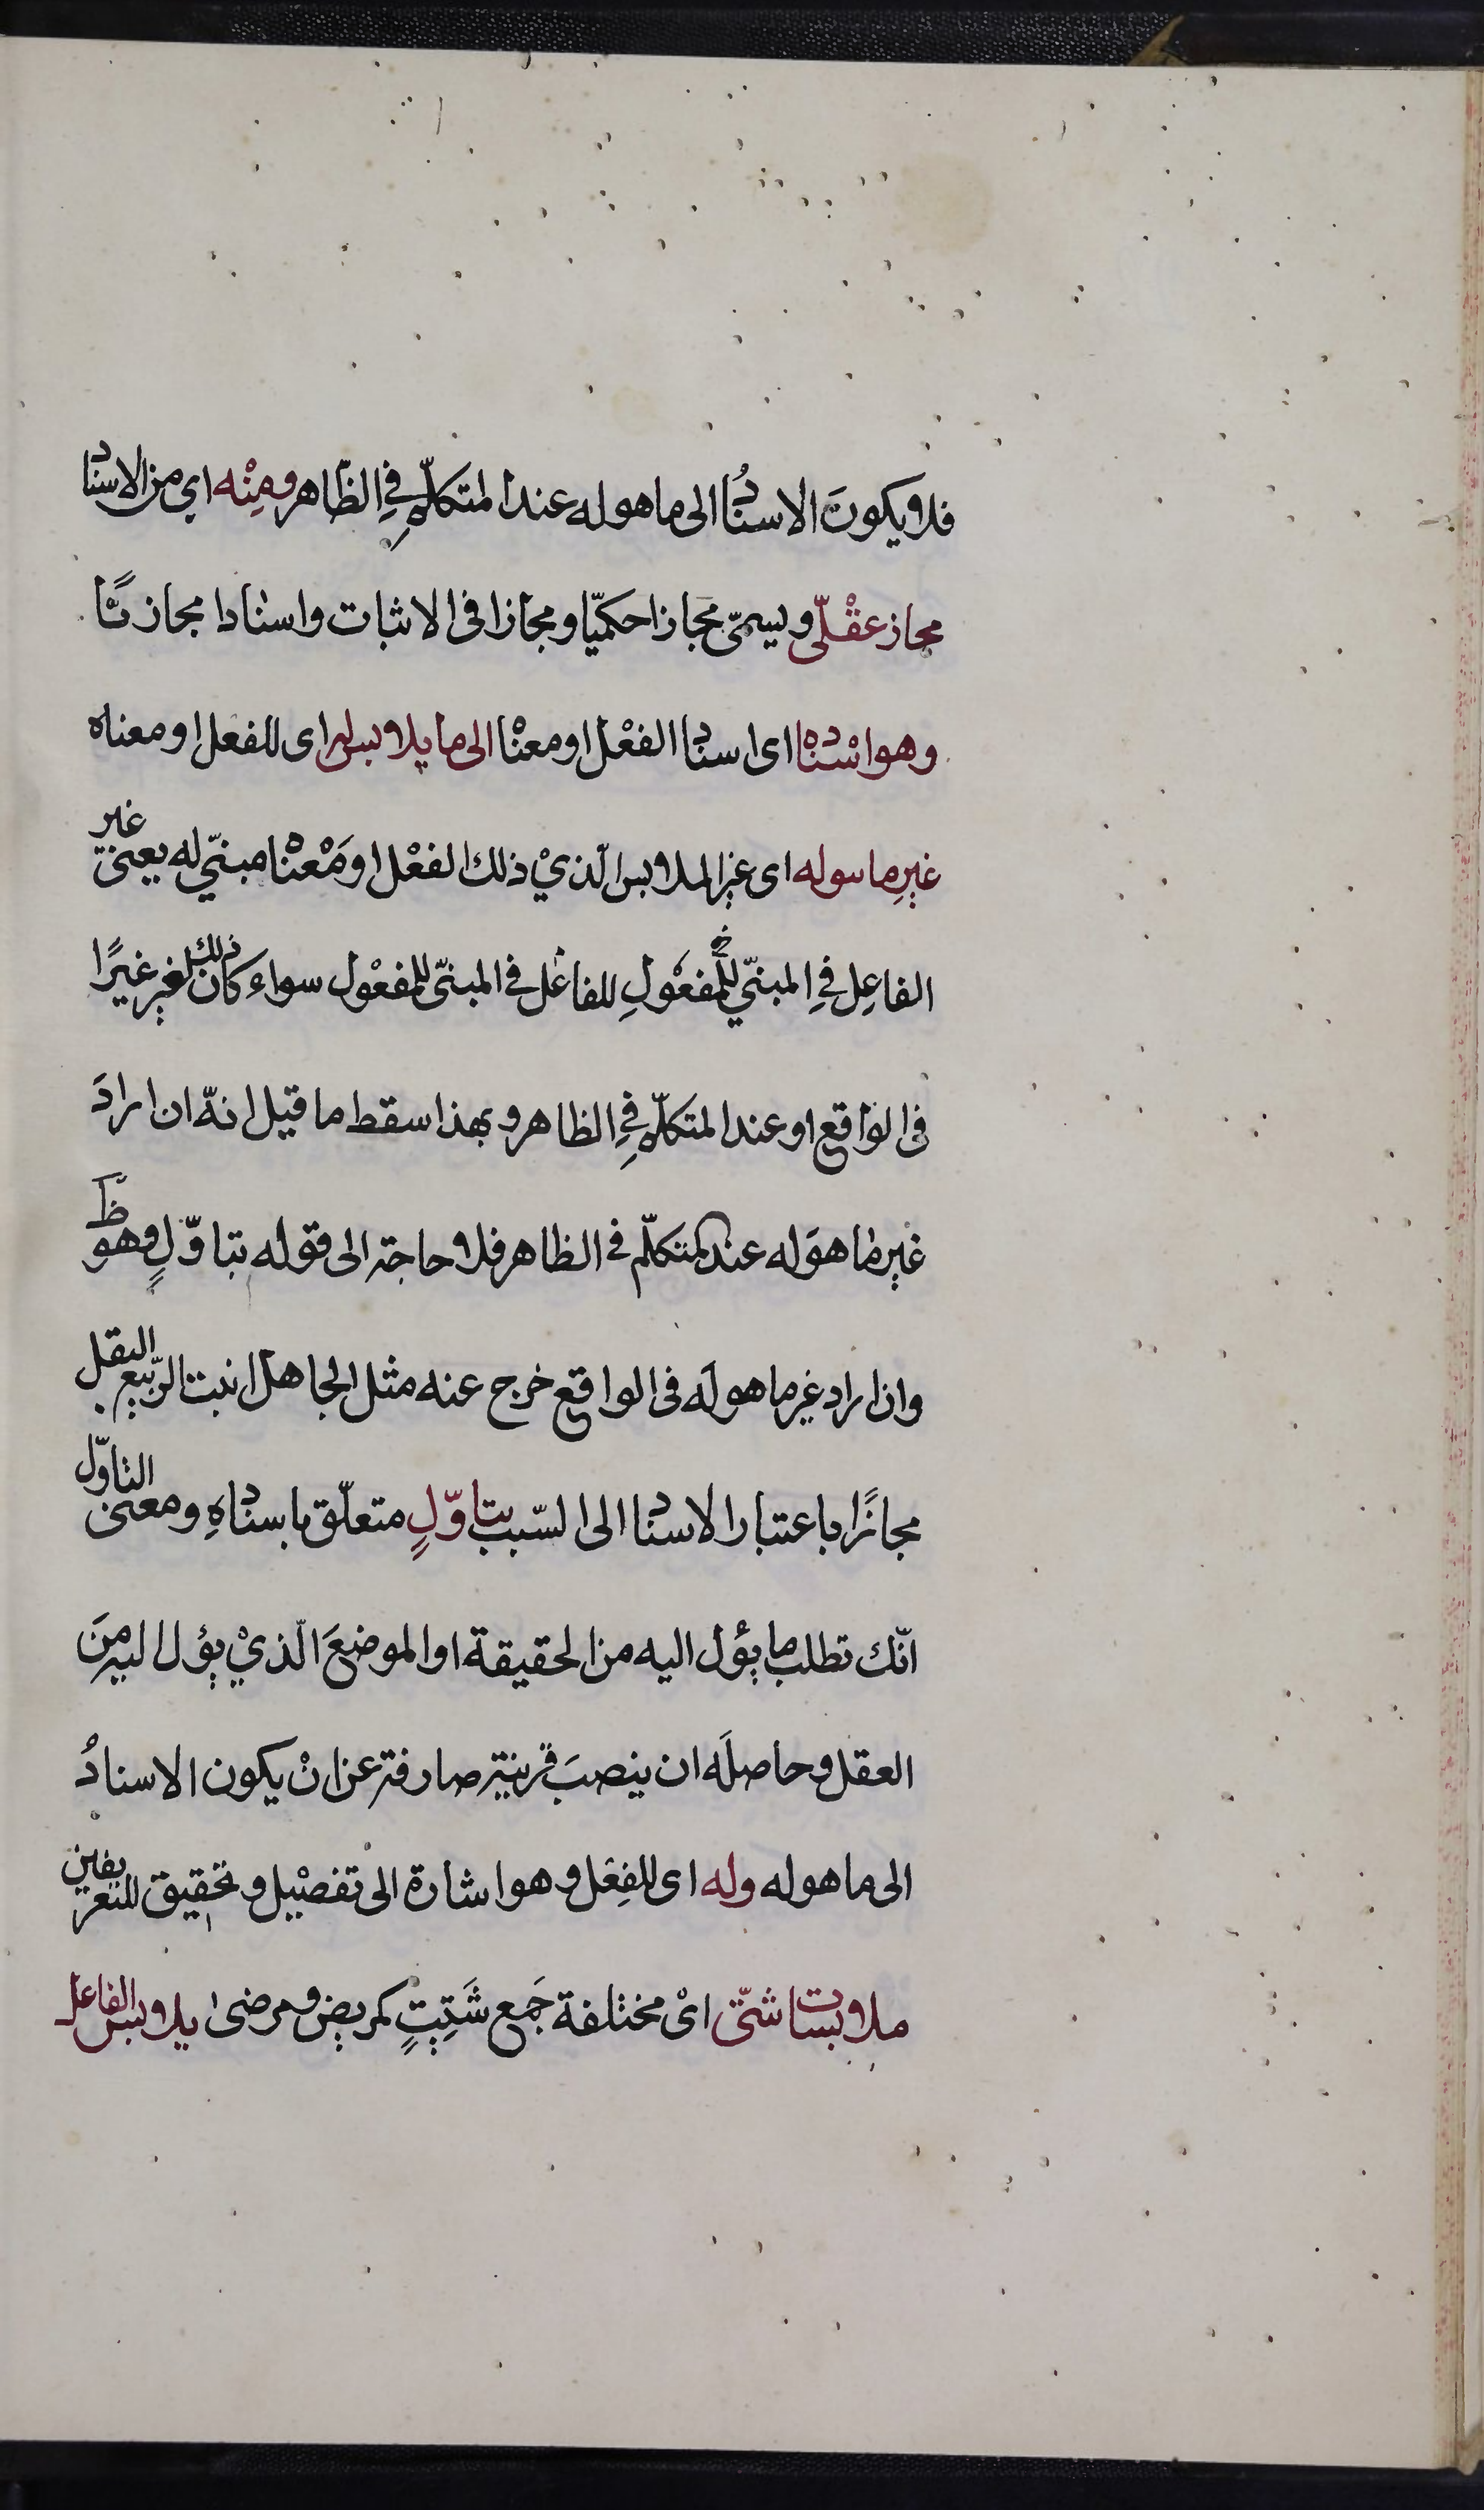 فلا يكونَ الاسنادُ الى ما هو له عند المتكلّمِ فِي الظّاهر ومِنْه اي من الاسناد
مجاز عقْلّى ويسمىّ مجازا حكميّا ومجازا فى الاثبات واسنادا مجازيًّا
وهو اسْناده اى اسناد الفعْل او معناه الى ما يلابس له اى للفعل او معناه
غيرِ ما هو له اى غير الملابس الّذيْ ذلك الفعْل او مَعْناه مبنيّ له يعنى غير
الفاعِل فِي المبنيّ للمفعُولِ للفاعل فى المبنىّ للمفعْول سواء كان ذلك الغير غيرًا
فى الواقع او عند المتكلّمِ فِي الظاهر وبهذا سقط ما قيل انهّ ان ارادَ
غير ما هوَ له عند المتكلّم فى الظاهر فلا حاجة الى قوله بتاوّلٍ وهو ظ
وان اراد غير ما هو لَه فى الواقع خرج عنه مثل الجاهل انبت الرّبيع البقل
مجازًا باعتبار الاسناد الى السّبب بتاوّلٍ متعلّق باسنادهِ ومعنى التاوّل
انّك تطلب ما يؤل اليه من الحقيقة او الموضعَ الّذيْ يؤل اليه منَ
العقل وحاصلَه ان ينصبَ قرينة صارفة عن انْ يكون الاسنادُ
الى ما هو له وله اى للفِعْل وهو اشارة الى تفصْيل وتحقيق للتعريفين
ملابسات شتّى ايْ مختلفة جَمع شَتِيتٍ كمريض ومرضى يلابس الفاعل